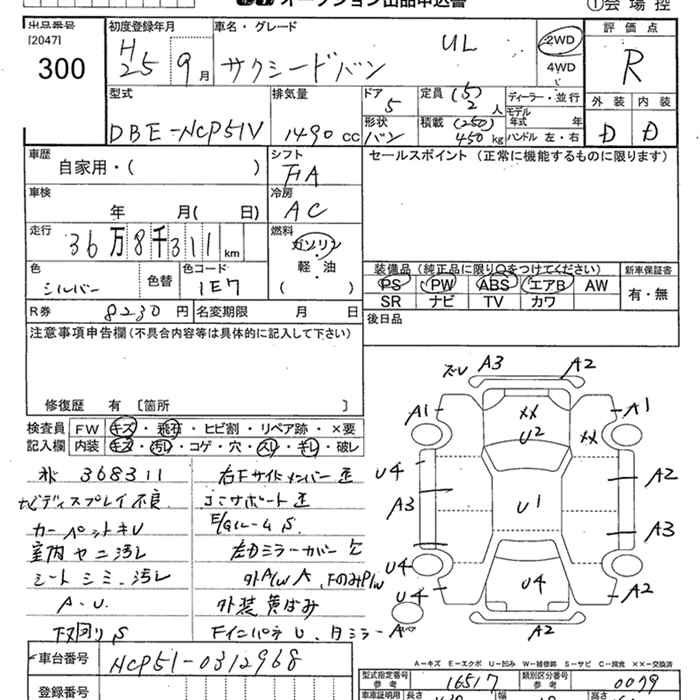 オークション出品申込書
①会場控
出品番号 初度登録年月 車名・グレード 評価点
[2047]
300
H25 9月 サクシードバン UL 2WD 4WD R
型式 排気量 ドア 定員 (5) 2人 ディーラー・並行 外装 内装
DBE-NCP51V 1490 CC 5 モデル年式 年
形状 バン 積載 (250) 450kg ハンドル 左・右 D D
車歴 シフト セールスポイント(正常に機能するものに限ります)
自家用・( ) FA
車検 冷房
年 月( 日) AC
走行 燃料
36万8千311km ガソリン・軽油( )
色 色替 色コード 装備品(純正品に限り○をつけてください) 新車保証書
シルバー 1E7 PS PW ABS エアB AW 有・無
SR ナビ TV カワ
R券 8230円 名変期限 月 日 後日品
注意事項申告欄(不具合内容等は具体的に記入して下さい)
修復歴 有 [箇所 ]
検査員 FW キズ・飛石・ヒビ割・リペア跡・×要
記入欄 内装 キズ・汚レ・コゲ・穴・スリ・キレ・破レ
368311 右Fサイドメンバー歪
ナビディスプレイ不良 コアサポート歪
カーペットキレ E/gルームS
室内ヤニ汚レ 左ドミラーカバー欠
シートシミ・汚レ 外A/W A、FのみP/W
A・U 外装黄ばみ
下廻りS FインパネU、
A3 A2
A1 XX A1
U2 XX
U4 A2
A3 U1 A3
U4 U4 A2
A2
A-キズ E-エクボ U-凹み W-補修跡 S-サビ C-腐食 ××-交換済
車台番号 NCP51-0312968
型式指定番号 参考 16517 類別区分番号 参考 0079
登録番号 車庫証明用 長さ 幅 高さ